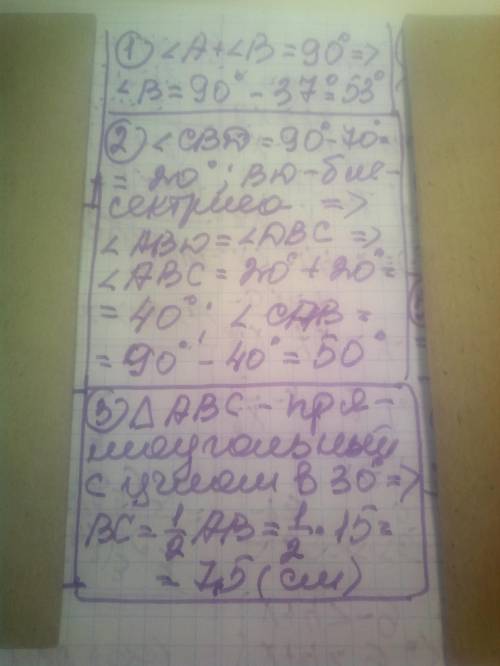 ① ∠A+∠B=90°=>
∠B=90°-37°=53°
② ∠CBD=90°-70°=
= 20°; BD-бис-
сектриса =>
∠ABD=∠DBC =>
∠ABC=20°+20°=
=40°; ∠CAB=
=90°-40°=50°
③ △ABC-пря-
моугольный
с углом в 30°=>
BC=1/2 AB=1/2·15=
=7,5(см)